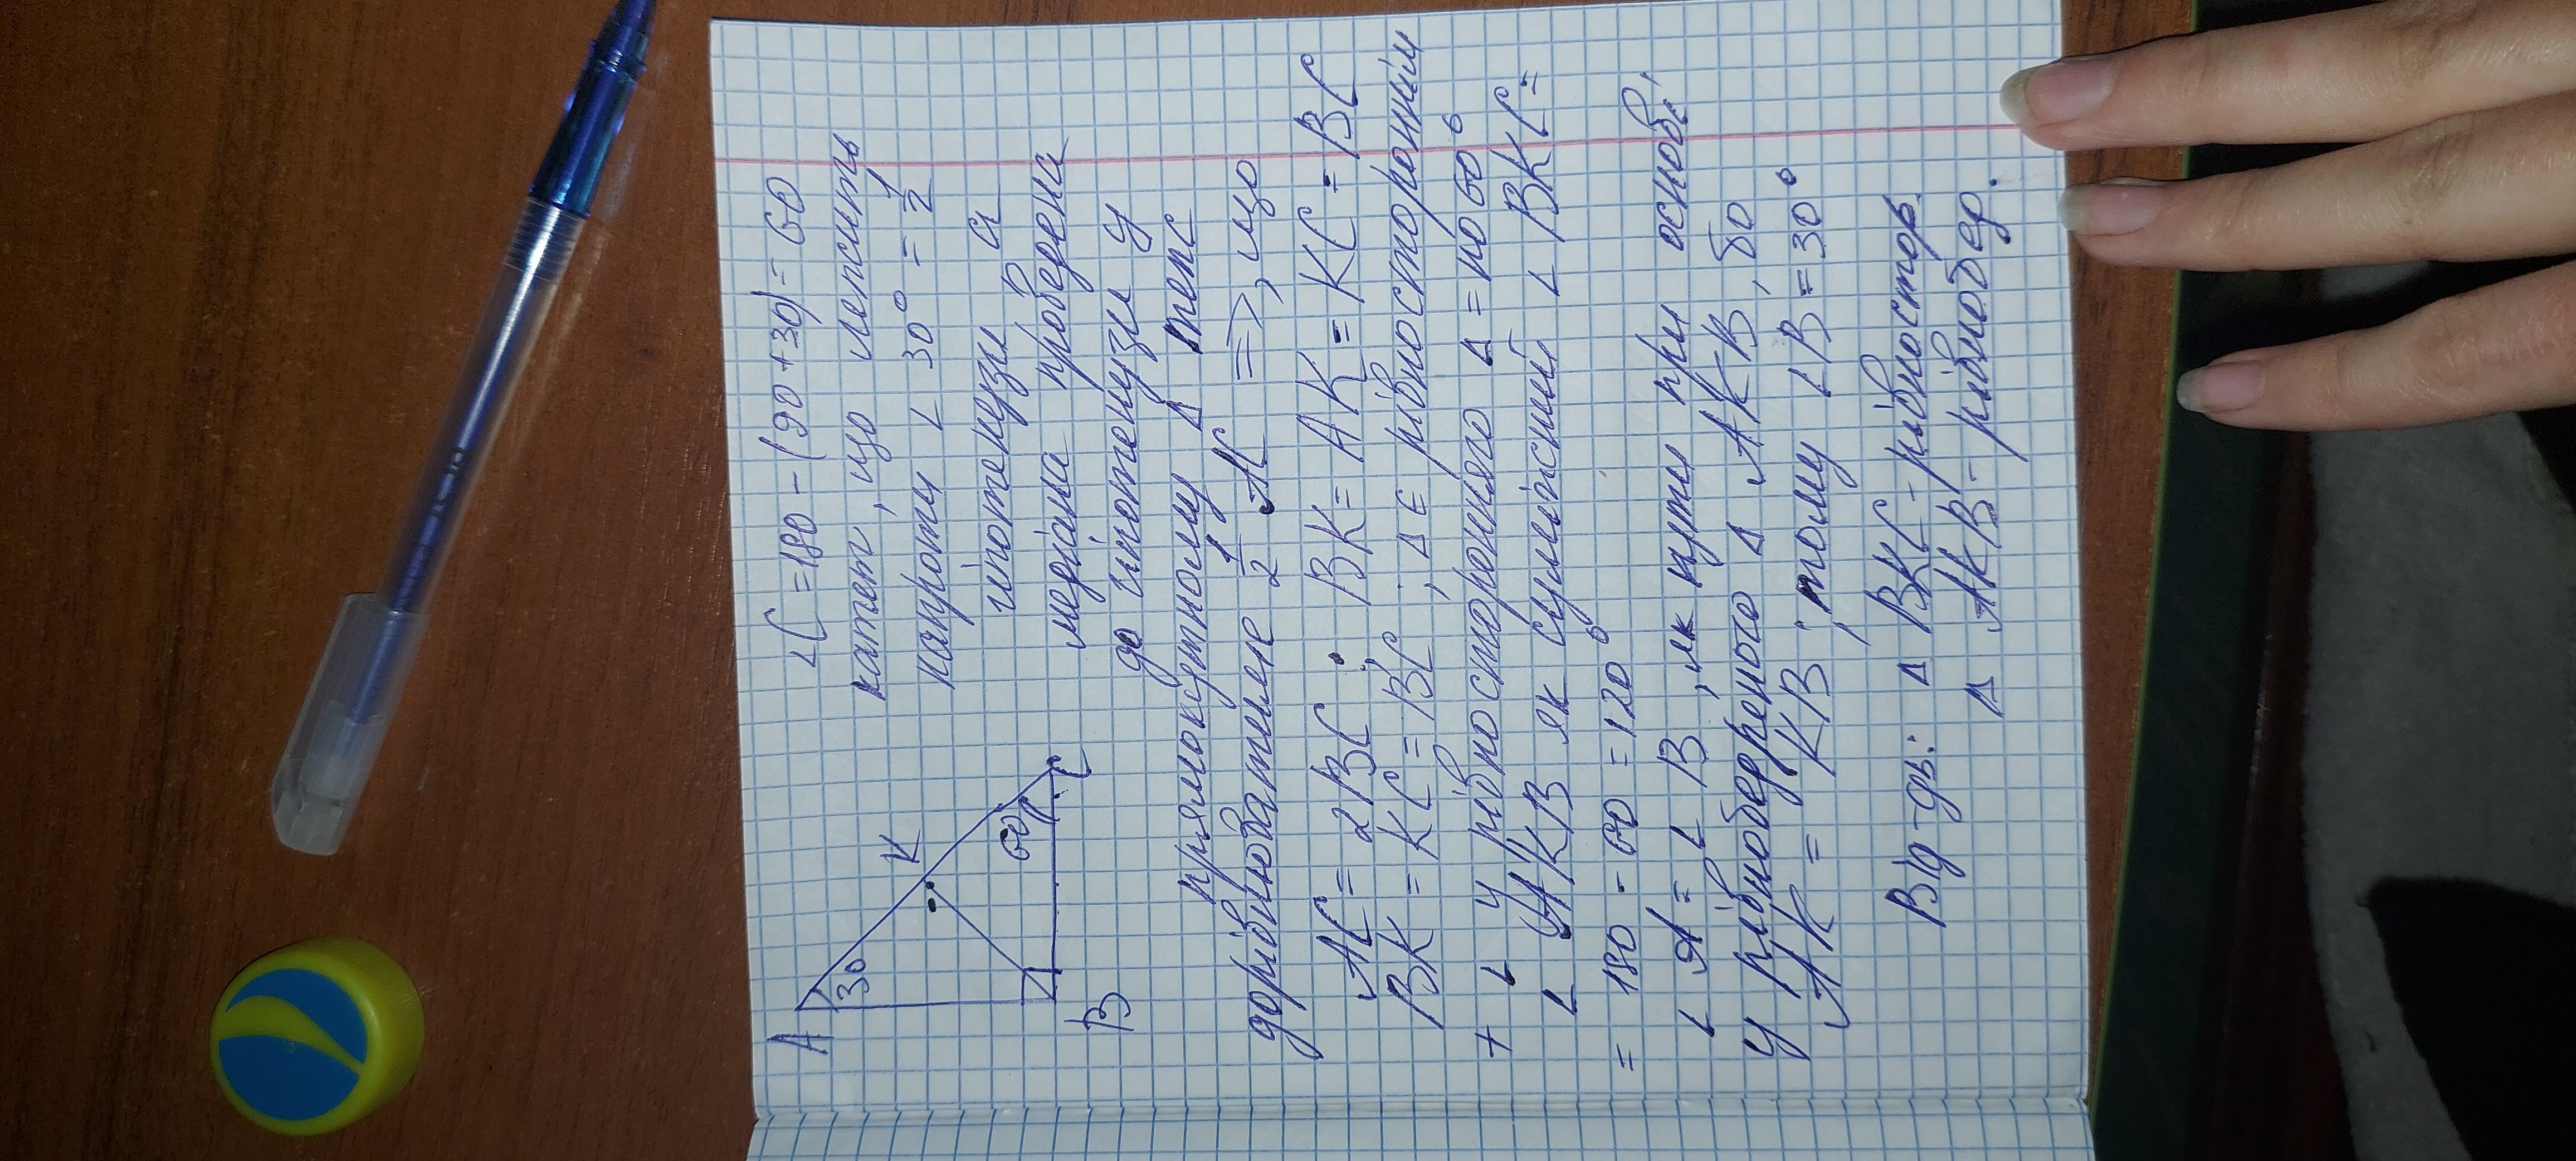 A
30
K
60
B
C
∠C = 180 - (90 + 30) = 60
катет, що лежить
напроти ∠ 30° = 1/2
гіпотенузи й
медіана проведена
до гіпотенузи у
прямокутному Δ теж
дорівнюватиме 1/2 AC =>, що
AC = 2BC; BK = AK = KC = BC
BK = KC = BC; Δ є рівностороннім
+ ∠ у рівностороннього Δ = по 60°
∠ AKB як суміжний ∠ BKC =
= 180 - 60 = 120°
∠ A = ∠ B, як кути при основі,
у рівнобедреного Δ AKB, бо
AK = KB; тому ∠B = 30°
Від-дь: Δ BKC - рівностор.
Δ AKB - рівнобед.